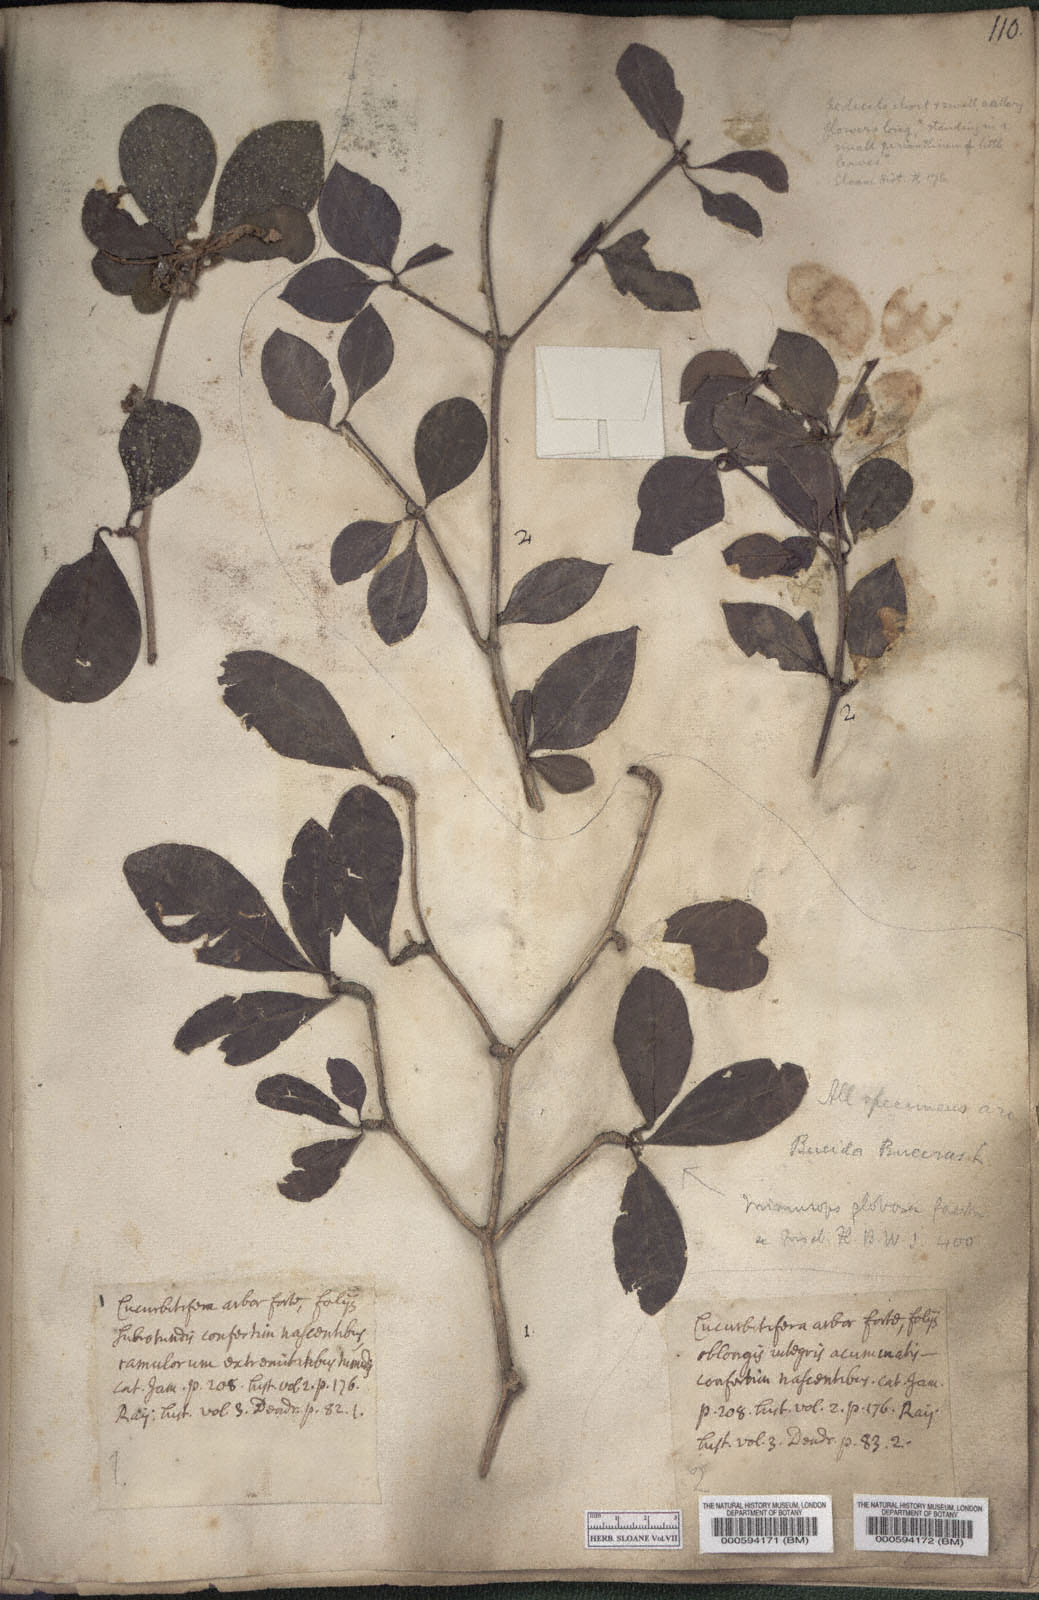 110.
Pedicels short & small axillary
flowers long, "standing in a
small perianthium of little
leaves"
Sloane Hist. II, 176
2
2
All specimens are
Bucida Buceras L
Mimusops globosa Gaertn
Griseb. Fl. B. W. I. 400
1
1 Cucurbitifera arbor forte, folijs
subrotundis confertim nascentibus,
ramulorum extremitatibus
cat. Jam. p. 208. hist. vol 2. p. 176.
Raij. hist. vol. 3. Dendr. p. 82. 1.
1.
Cucurbitifera arbor forte, folijs
oblongis integris acuminatis
confertim nascentibus. cat. Jam.
p. 208. hist. vol. 2. p. 176. Raij
hist. vol. 3. Dendr. p. 83. 2.
2
mm 1 2 3
HERB. SLOANE Vol.VII
THE NATURAL HISTORY MUSEUM, LONDON
DEPARTMENT OF BOTANY
000594171 (BM)
THE NATURAL HISTORY MUSEUM, LONDON
DEPARTMENT OF BOTANY
000594172 (BM)